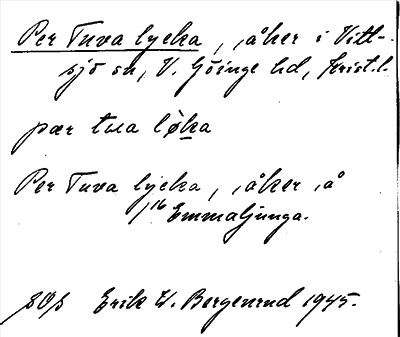 Per Tuva lycka, åker i Vitt-
sjö sn, V. Göinge hd, Krist.l.
pær tua løka
Per Tuva lycka, åker å
1/16 Emmaljunga.
Erik W. Bergenrud 1945.